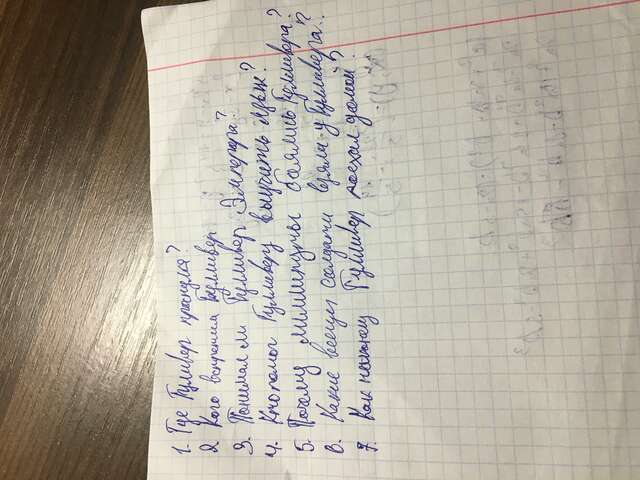 1. Где Гуливер проснулся?
2. Кого встретил Гулливер
3. Понимал ли Гулливер Эмперора?
4. Кто помог Гулливеру выучить язык?
5. Почему лиллипуты боялись Гулливера?
6. Какие вещи солдаты взяли у Гулливера?
7. Как наконец Гулливер доехал домой?